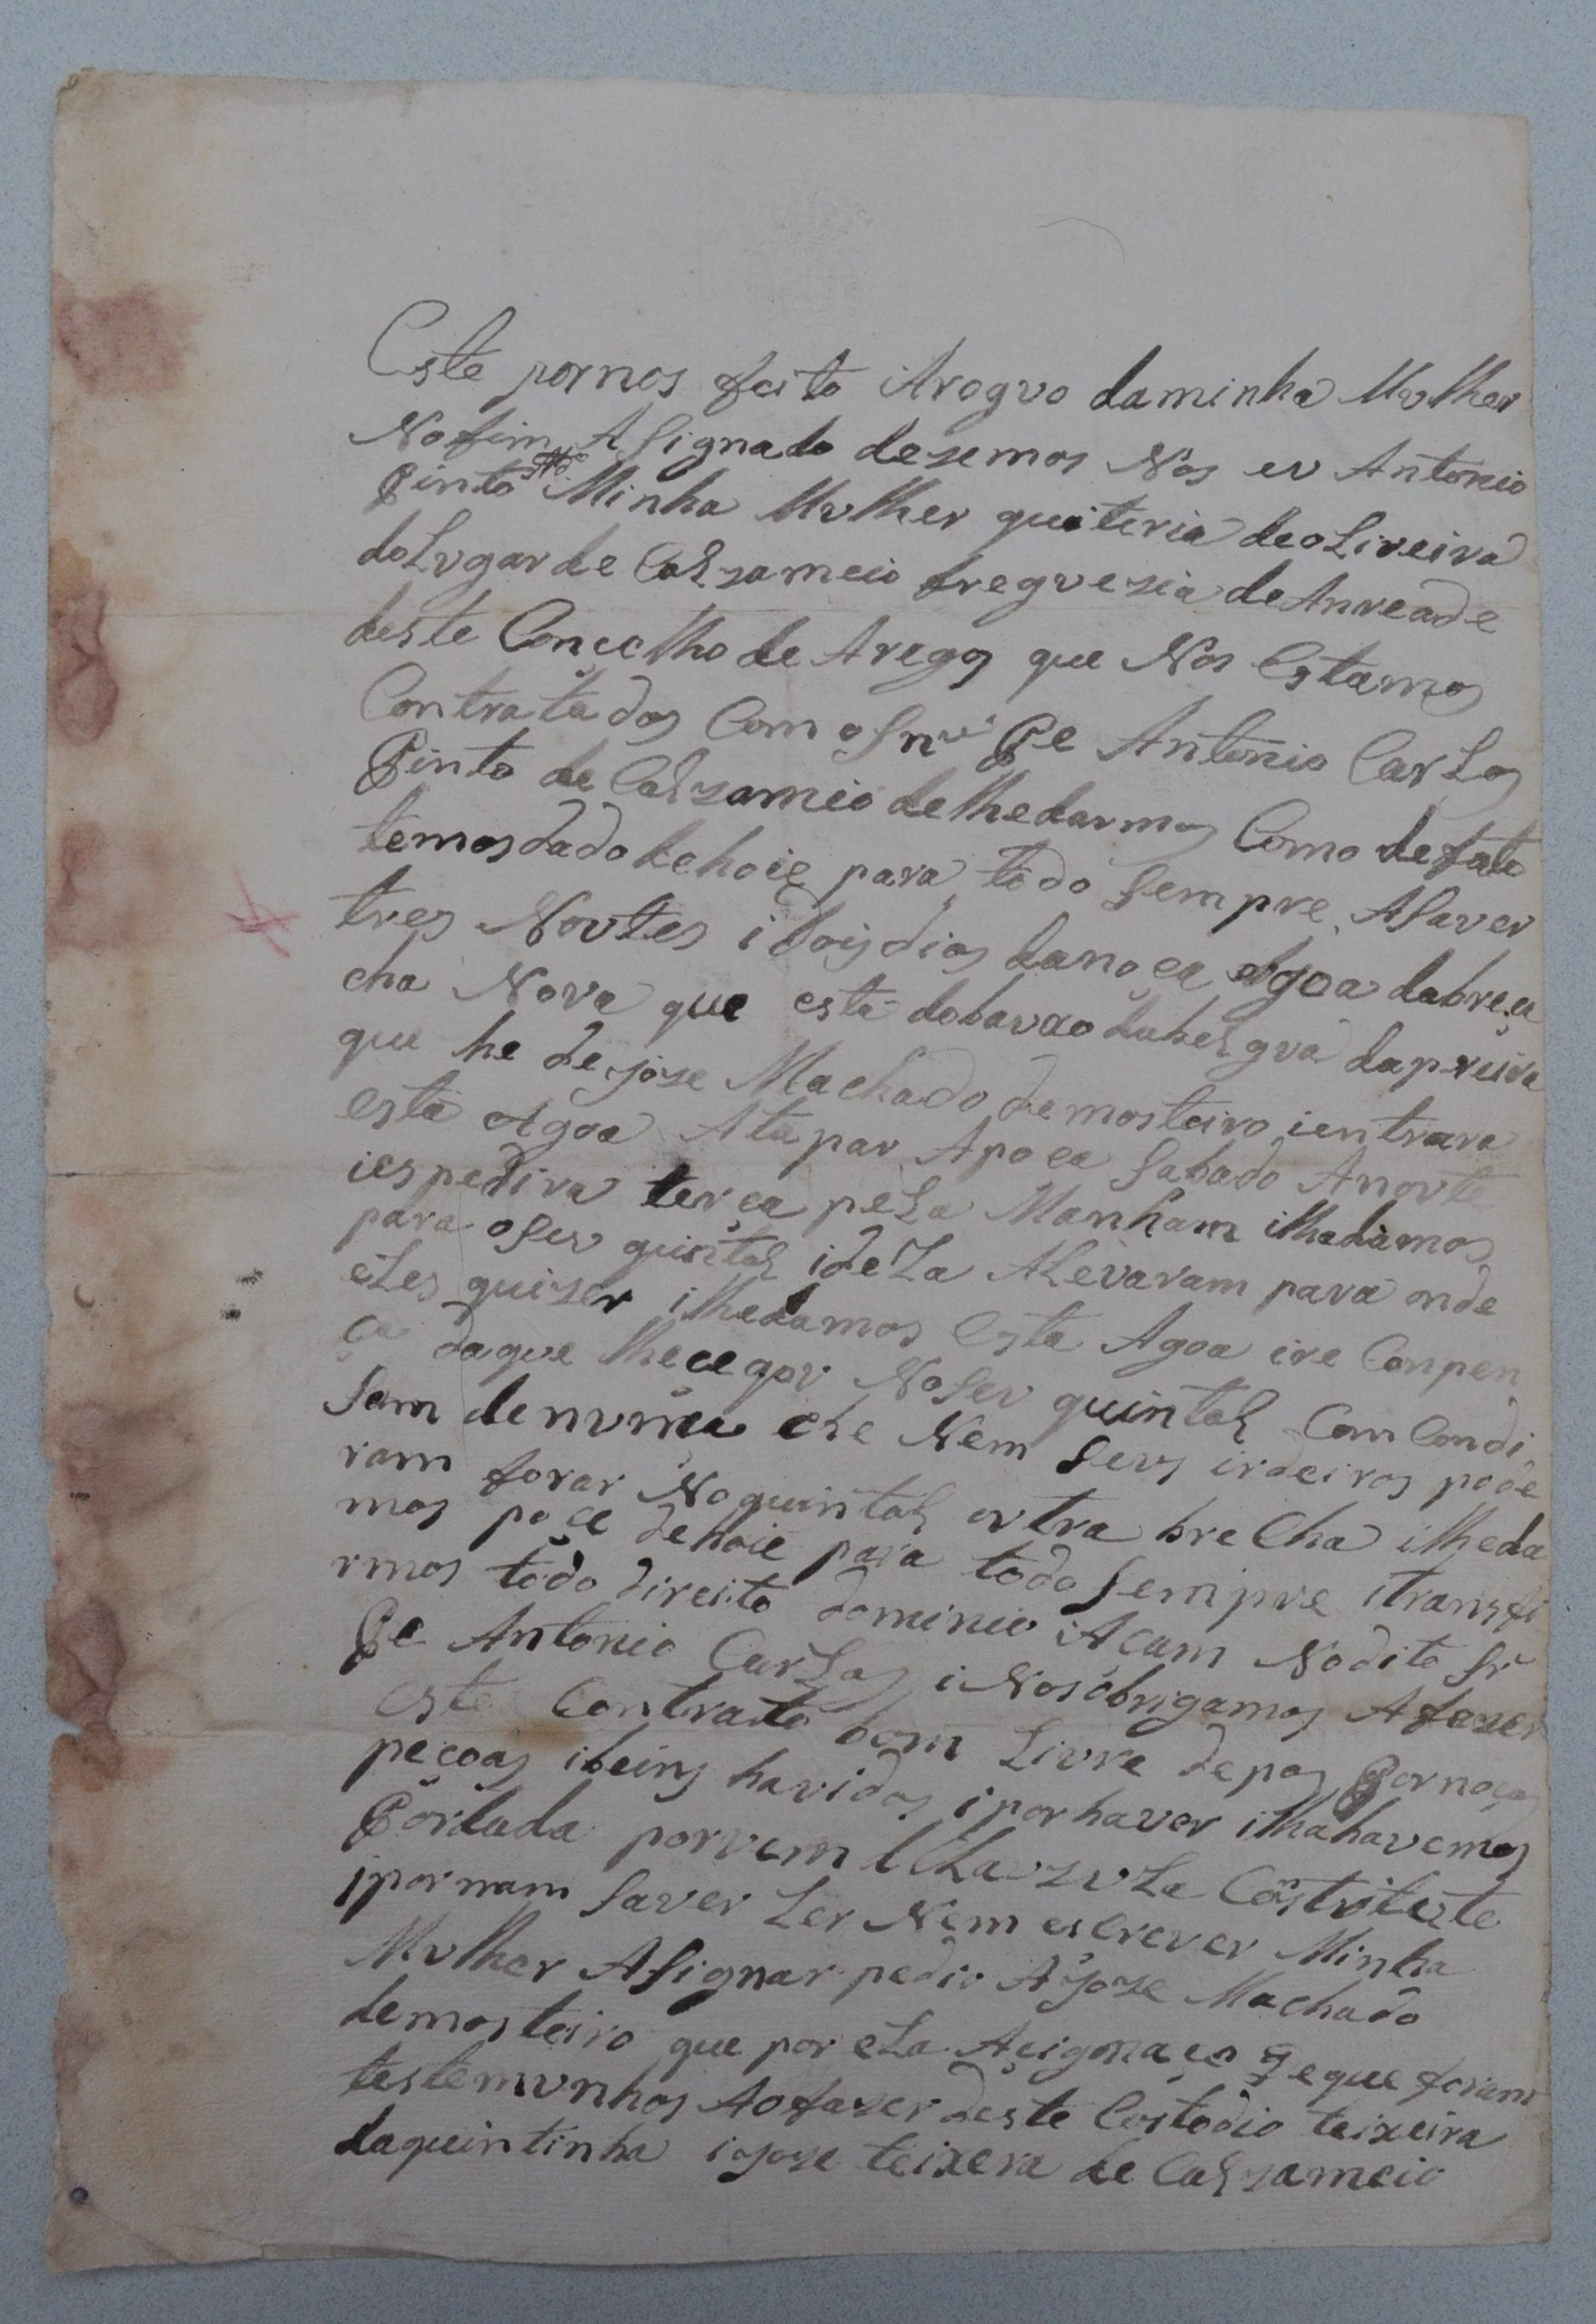 Este pornos feito i Arogvo daminha Mvlher
Nofim ASignado desemos Nos ev Antonio
Pinto Minha Mvlher quiteria deoLiveira
doLvgar de Calsameio fregvesia de Anreade
deste Concelho de Aregos que Nos Estamos
Contratados Com o Snr Pe Antonio CarLos
Pinto de Calsameio delhedarmos Como defato
temosdado dehoie para todo Sempre ASaver
tres Novtes i dois dias danoça Agoa dabre
cha Nova que esta dobaxo da
que he de joze Machado demosteiro ientrara
esta Agoa Atapar Apoça Sabado Anovte
iespedira terça peLa Manham ilhedamos
para oSev quintal ideLa ALevaram para onde
eLes quiser ilhedamos Esta Agoa Conpen
ça daque lhecegov NoSev quintal Com Condi
Sam denvnca eLe Nem Sevs irdeiros pode
ram forar Noquintal ovtra breCha ilheda
mos poçe dehoie para todo Sempre itransfi
rmos todo direito dominio Acam Nodito Sr
Pe Antonio CarLos i Nosobrigamos Afazer
este Contrato bom Livre depas Pornoças
peçoas ibeins havidos iporhaver ilhahavemos
Pordada porvem
ipornam Saver Ler Nem esCrever Minha
Mvlher ASignar pedio Ajoze Machado
demosteiro que por eLa Açignaço eque foram
testemvnhos Aofazer deste Costodio teixeira
daquintinha ijoze teixera de Calsameio